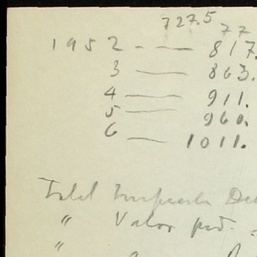 727.5
77
1952 - - — 817.
3 — 863.
4 — 911.
5 — 960.
6 — 1011.
Total
" Valor
"